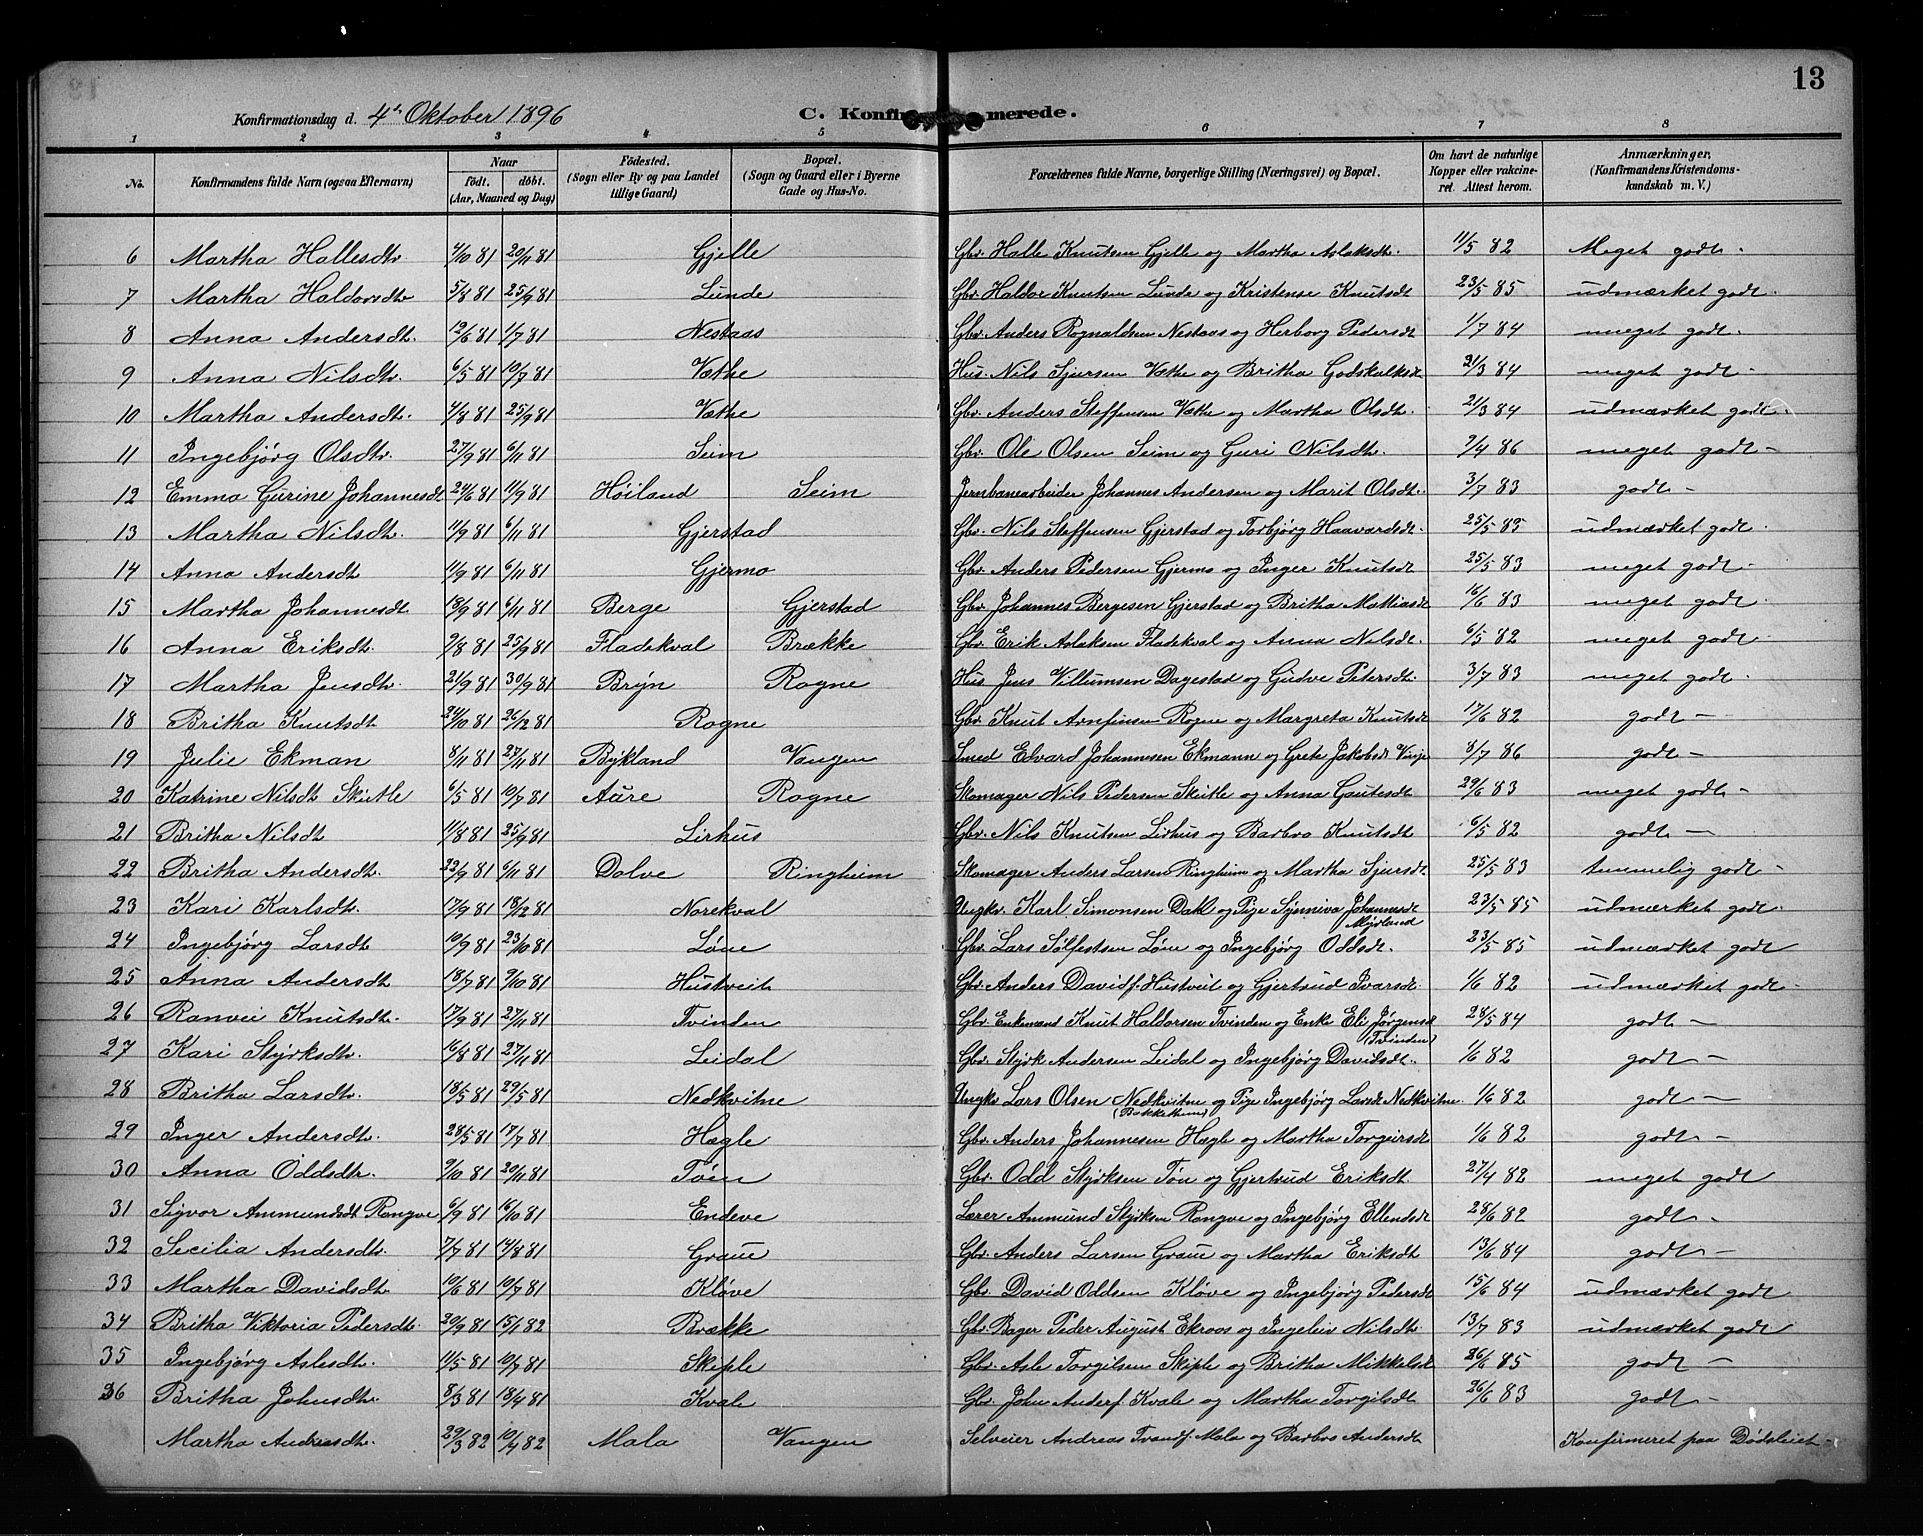 13
Konfirmationsdag d. 4de Oktober 1896
C. Konfirmerede.
1 2 3 4 5 6 7 8
No. Konfirmandens fulde Navn (ogsaa Efternavn) Naar födt. döbt. (Aar, Maaned og Dag) Födested. (Sogn eller By og paa Landet tillige Gaard) Bopæl. (Sogn og Gaard eller i Byerne Gade og Hus-No. Forældrenes fulde Navne, borgerlige Stilling (Næringsvei) og Bopæl. Om havt de naturlige Kopper eller vakcineret. Attest herom. Anmærkninger, (Konfirmandens Kristendomskundskab m. V.)
6 Martha Hallesdtr. 4/10 81 20/11 81 Gjelle Gbr. Halle Knutsen Gjelle og Martha Aslaksdt. 11/5 82 Meget godt -
7 Martha Haldorsdtr 5/8 81 25/9 81 Lunde Gbr. Haldor Knutsen Lunde og Kristense Knutsdt 23/5 85 udmærket godt.
8 Anna Andersdt. 12/6 81 1/7 81 Nestaas Gbr. Anders Rognaldsen Nestaas og Herborg Pedersdt 1/7 84 meget godt -
9 Anna Nilsdtr. 6/5 81 10/7 81 Væthe Hus. Nils Sjursen Væthe og Britha Godskalksdt 21/3 84 meget godt -
10 Martha Andersdt. 4/8 81 25/9 81 Væthe Gbr. Anders Steffensen Væthe og Martha Olsdt. 21/3 84 udmærket godt.
11 Ingebjørg Olsdtr. 27/9 81 6/11 81 Seim Gbr. Ole Olsen Seim og Guri Nilsdt. 2/4 86 meget godt -
12 Emma Gurine Johannesdt 24/6 81 11/9 81 Høiland Seim Jernbanearbeider Johannes Andersen og Marit Olsdt. 3/7 83 godt -
13 Martha Nilsdt. 11/9 81 6/11 81 Gjerstad Gbr. Nils Steffensen Gjerstad og Torbjørg Haavardsdt. 25/5 83 udmærket godt.
14 Anna Andersdt 11/9 81 6/11 81 Gjermo Gbr. Anders Pedersen Gjermo og Inger Knutsdt 25/5 83 meget godt.
15 Martha Johannesdt 13/9 81 6/11 81 Berge Gjerstad Gbr. Johannes Bergesen Gjerstad og Britha Mattiasdt 16/6 83 meget godt.
16 Anna Eriksdt. 2/8 81 25/9 81 Fladekval Brække Gbr. Erik Aslaksen Fladekval og Anna Nilsdt. 6/5 82 meget godt.
17 Martha Jensdt. 21/9 81 30/9 81 Bryn Rogne Hus Jens Villumsen Dagestad og Gudve Petersdt. 3/7 83 meget godt.
18 Britha Knutsdt 24/10 81 26/12 81 Rogne Gbr. Knut Arnfinsen Rogne og Margreta Knutsdt 17/6 82 godt -
19 Julie Ekman 8/11 81 27/11 81 Bykland Vangen Smed Edvard Johannesen Ekmann og Grete Jakobsdt Vinje 8/7 86 godt -
20 Katrine Nilsdt Skutle 6/5 81 10/7 81 Aure Rogne Skomager Nils Pedersen Skutle og Anna Gautesdt 29/6 83 meget godt -
21 Britha Nilsdt 11/8 81 25/9 81 Lirhus Gbr. Nils Knutsen Lirhus og Barbro Knutsdt 6/5 82 godt -
22 Britha Andersdt. 22/9 81 6/11 81 Dolve Ringheim Skomager Anders Larsen Ringheim og Martha Sjursdt 25/5 83 temmelig godt -
23 Kari Karlsdt. 17/9 81 18/12 81 Norekval Ungkr. Karl Simonsen Dahl og Pige Synniva Johannesdt Myrland 23/5 85 udmærket godt.
24 Ingebjørg Larsdt 10/9 81 23/10 81 Løne Gbr. Lars Sølfestsen Løne og Ingebjørg Oddsdt. 23/5 85 udmærket godt
25 Anna Andersdt 18/7 81 9/10 81 Hustveit Gbr. Anders Davidf. Hustveit og Gjertrud Ivarsdt. 1/6 82 udmærket godt -
26 Ranvei Knutsdt. 17/9 81 27/11 81 Tvinden Gbr. Enkemand Knut Haldorsen Tvinden og Enke Eli Jørgensdt (Tvinden) 28/5 84 godt -
27 Kari Styrksdt. 16/8 81 27/11 81 Leidal Gbr. Styrk Andersen Leidal og Ingebjørg Davidsdt. 1/6 82 godt -
28 Britha Larsdt. 18/5 81 29/5 81 Nedkvitne Ungkr Lars Olsen Nedkvitne (Bakkethun) og Pige Ingebjørg Larsdt Nedkvitne. 1/6 82 godt -
29 Inger Andersdt. 28/5 81 17/7 81 Hægle Gbr. Anders Johannesen Hægle og Martha Torgeirsdt 1/6 82 godt -
30 Anna Oddsdtr. 9/10 81 20/11 81 Tøn Gbr. Odd Styrksen Tøn og Gjertrud Eriksdt. 27/4 82 meget godt
31 Sigvor Ammundsdt Rongve 6/9 81 16/10 81 Endeve Lærer Ammund Styrksen Rongve og Ingebjørg Ellendsdt 28/6 82 godt -
32 Secilia Andersdt. 7/7 81 14/8 81 Graue Gbr. Anders Larsen Graue og Martha Eriksdt 13/6 84 godt -
33 Martha Davidsdt. 10/6 81 10/7 81 Kløve Gbr. David Oddsen Kløve og Ingebjørg Pedersdt 15/6 84 udmærket godt
34 Britha Viktoria Pedersdt. 20/9 81 15/1 82 Brække Gbr. Bager Peder August Ekroos og Ingeleiv Nilsdt 13/7 83 udmærket godt
35 Ingebjørg Aslesdt. 11/5 81 10/7 81 Skiple Gbr. Asle Torgilsen Skiple og Britha Mikkelsdt 26/6 85 godt -
36 Britha Johnsdt. 8/3 81 18/4 81 Kvale Gbr. John Anderf. Kvale og Martha Torgilsdt 26/6 83 godt -
Martha Andreasdt. 29/3 82 10/4 82 Mala Vangen Selveier Andreas Trondf. Mala og Barbro Andersdt Konfirmeret paa Dødsleiet -